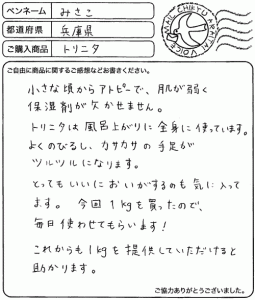 ペンネーム みさこ
都道府県 兵庫県
ご購入商品 トリニタ
MAIL CHIKYU ARATAI VOICE
ご自由に商品に関するご感想などお書きください。
小さな頃からアトピーで、肌が弱く
保湿剤が欠かせません。
トリニタは風呂上がりに全身に使っています。
よくのびるし、カサカサの手足が
ツルツルになります。
とってもいいにおいがするのも気に入って
ます。 今回1kgを買ったので、
毎日使わせてもらいます!
これからも1kgを提供していただけると
助かります。
ご協力ありがとうございました。